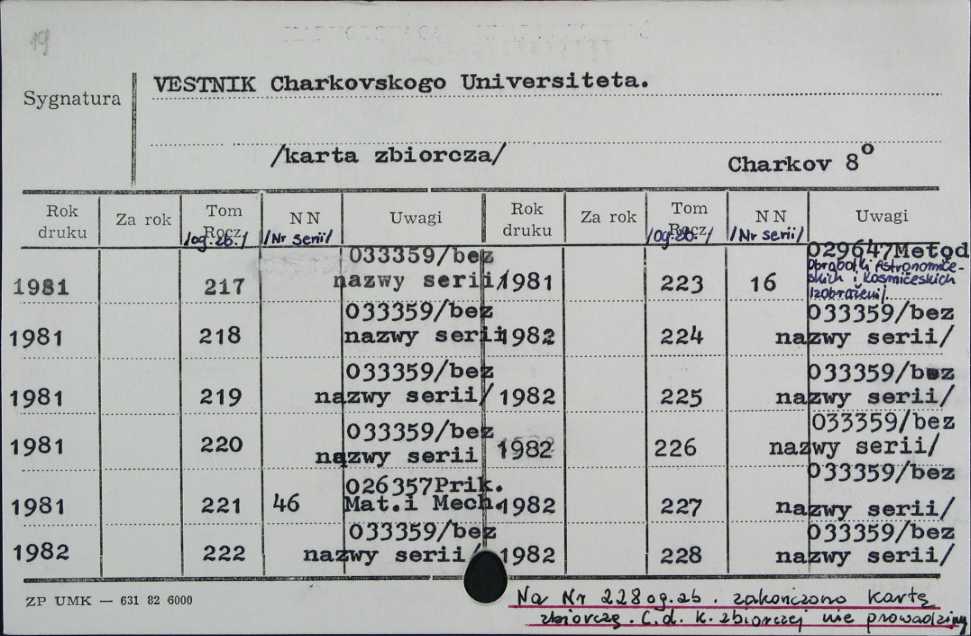 19
VESTNIK Charkovskogo Universiteta.
Sygnatura
/karta zbiorcza/
Charkov 8°
Rok druku Za rok Tom Rocz. /og.zb./ NN /Nr serii/ Uwagi Rok druku Za rok Tom Rocz. /og.zb./ NN /Nr serii/ Uwagi
1981 217 033359/bez nazwy serii/
1981 218 033359/bez nazwy serii
1981 219 033359/bez nazwy serii/
1981 220 033359/bez nazwy serii
1981 221 46 026357Prik. Mat.i Mech.
1982 222 033359/bez nazwy serii/
1981 223 16 029647Metod Obrabotki Astronomiče-
skich i Kosmičeskich
Izobraženij/.
1982 224 033359/bez nazwy serii/
1982 225 033359/bez nazwy serii/
1982 226 033359/bez nazwy serii/
1982 227 033359/bez nazwy serii/
1982 228 033359/bez nazwy serii/
ZP UMK — 631 82 6000
Na Nr 228 og.zb. zakończono kartę
zbiorczą. C.d. k. zbiorczej nie prowadzimy